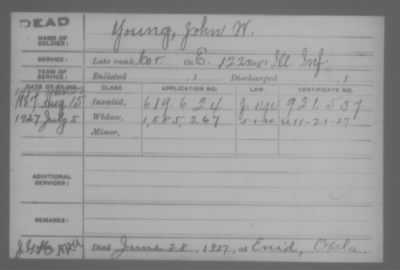 DEAD
NAME OF SOLDIER: Young, John W.
SERVICE: Late rank, Cor Co. E. 122 Regt Ill Inf.
TERM OF SERVICE: Enlisted , 1 Discharged , 1
DATE OF FILING. CLASS. APPLICATION NO. LAW. CERTIFICATE NO.
1887 Aug 15 Invalid, 619.624 921.537
1927 July 5 Widow, 1,585,267 11-21-27
Minor,
ADDITIONAL SERVICES:
REMARKS:
Died June 28, 1927, at Enid, Okla.